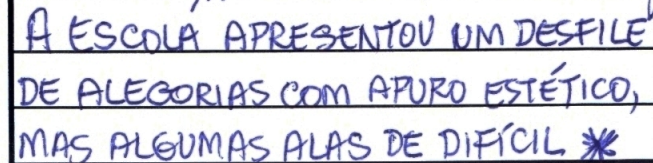 A ESCOLA APRESENTOU UM DESFILE
DE ALEGORIAS COM APURO ESTÉTICO,
MAS ALGUMAS ALAS DE DIFÍCIL *